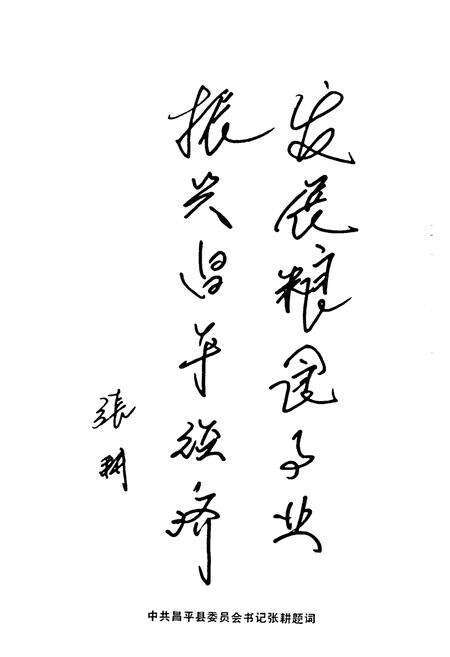 发展粮食事业
振兴昌平经济
张耕
中共昌平县委员会书记张耕题词